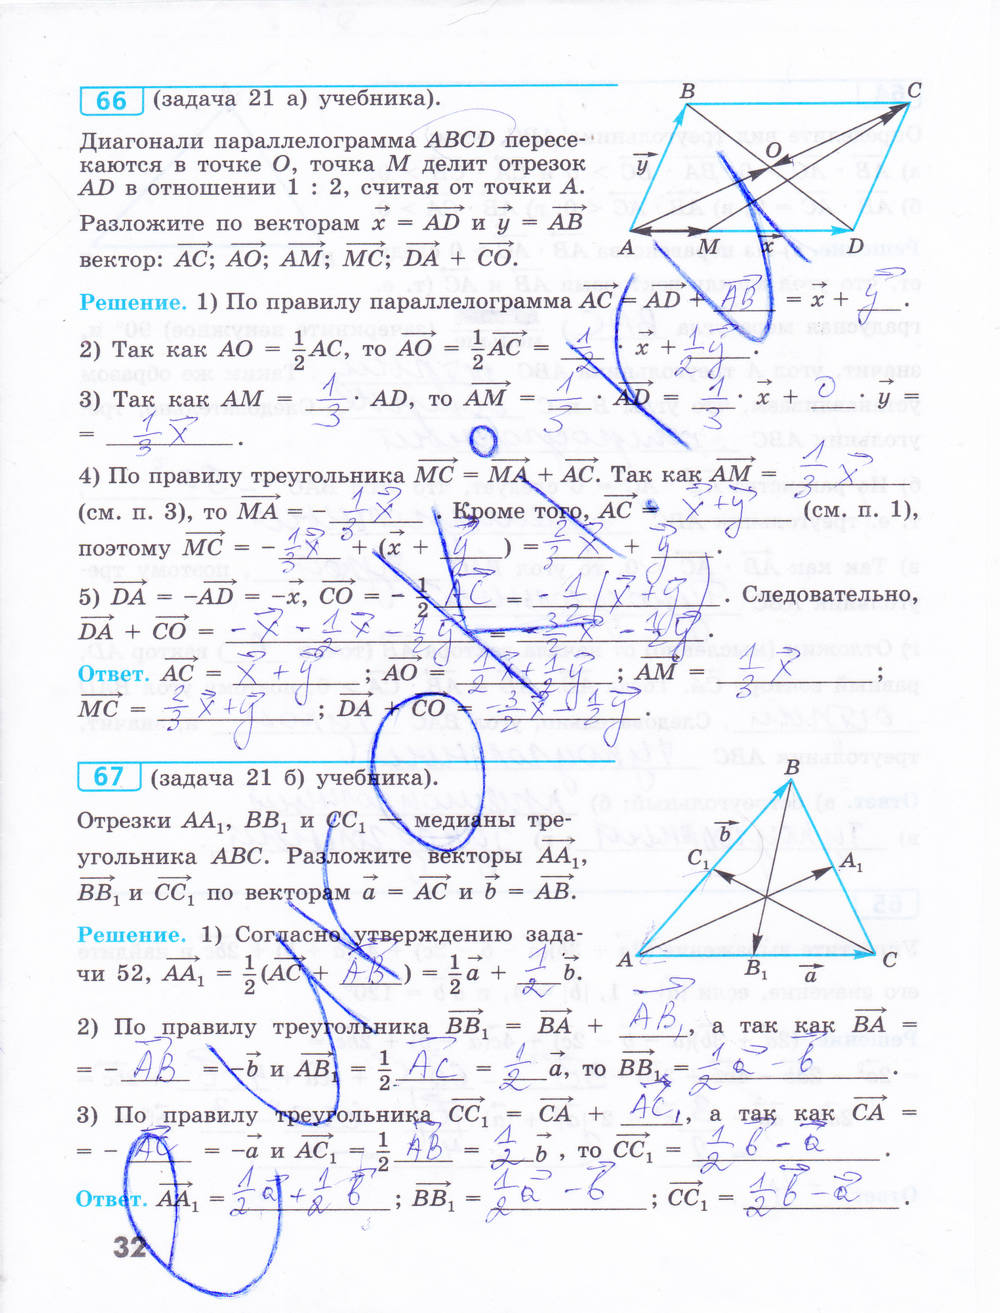 66 (задача 21 а) учебника).
Диагонали параллелограмма ABCD пересе-
каются в точке O, точка M делит отрезок
AD в отношении 1 : 2, считая от точки A.
Разложите по векторам x⃗ = AD⃗ и y⃗ = AB⃗
вектор: AC⃗; AO⃗; AM⃗; MC⃗; DA⃗ + CO⃗.
B
C
O
y⃗
A
M
x⃗
D
Решение. 1) По правилу параллелограмма AC⃗ = AD⃗ + AB⃗ = x⃗ + y⃗.
2) Так как AO = 1/2 AC, то AO⃗ = 1/2 AC⃗ = 1/2 · x⃗ + 1/2 y⃗.
3) Так как AM = 1/3 · AD, то AM⃗ = 1/3 · AD⃗ = 1/3 · x⃗ + 0 · y⃗ =
= 1/3 x⃗.
4) По правилу треугольника MC⃗ = MA⃗ + AC⃗. Так как AM⃗ = 1/3 x⃗
(см. п. 3), то MA⃗ = – 1/3 x⃗. Кроме того, AC⃗ = x⃗ + y⃗ (см. п. 1),
поэтому MC⃗ = – 1/3 x⃗ + (x⃗ + y⃗) = 2/3 x⃗ + y⃗.
5) DA⃗ = –AD⃗ = –x⃗, CO⃗ = – 1/2 AC⃗ = – 1/2 (x⃗ + y⃗). Следовательно,
DA⃗ + CO⃗ = – x⃗ – 1/2 x⃗ – 1/2 y⃗ = – 3/2 x⃗ – 1/2 y⃗.
Ответ. AC⃗ = x⃗ + y⃗; AO⃗ = 1/2 x⃗ + 1/2 y⃗; AM⃗ = 1/3 x⃗;
MC⃗ = 2/3 x⃗ + y⃗; DA⃗ + CO⃗ = – 3/2 x⃗ – 1/2 y⃗.
67 (задача 21 б) учебника).
Отрезки AA₁, BB₁ и CC₁ — медианы тре-
угольника ABC. Разложите векторы AA₁⃗,
BB₁⃗ и CC₁⃗ по векторам a⃗ = AC⃗ и b⃗ = AB⃗.
B
b⃗
C₁
A₁
A
B₁
a⃗
C
Решение. 1) Согласно утверждению зада-
чи 52, AA₁⃗ = 1/2 (AC⃗ + AB⃗) = 1/2 a⃗ + 1/2 b⃗.
2) По правилу треугольника BB₁⃗ = BA⃗ + AB₁⃗, а так как BA⃗ =
= – AB⃗ = –b⃗ и AB₁⃗ = 1/2 AC⃗ = 1/2 a⃗, то BB₁⃗ = 1/2 a⃗ – b⃗.
3) По правилу треугольника CC₁⃗ = CA⃗ + AC₁⃗, а так как CA⃗ =
= – AC⃗ = –a⃗ и AC₁⃗ = 1/2 AB⃗ = 1/2 b⃗, то CC₁⃗ = 1/2 b⃗ – a⃗.
Ответ. AA₁⃗ = 1/2 a⃗ + 1/2 b⃗; BB₁⃗ = 1/2 a⃗ – b⃗; CC₁⃗ = 1/2 b⃗ – a⃗.
32